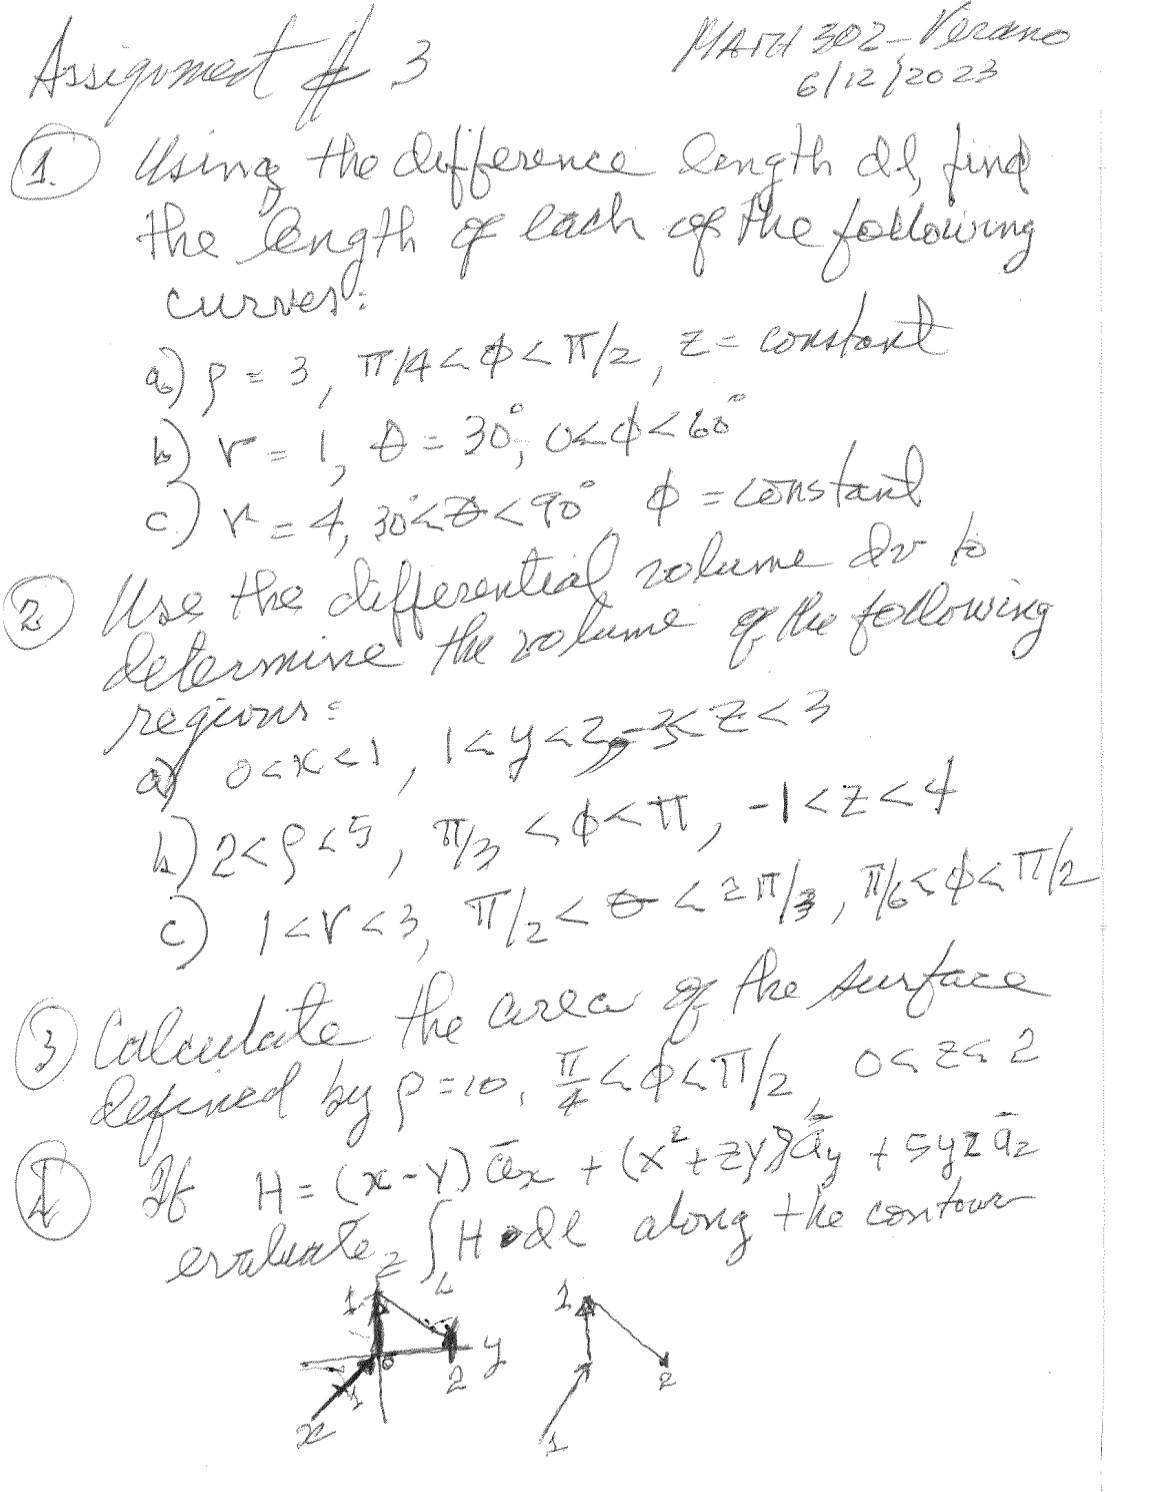 Assignment # 3
MATH 302-Verano
6/12/2023
1. Using the difference length dl, find
the length of each of the following
curves:
a) ρ = 3, π/4 < φ < π/2, z = constant
b) r = 1, θ = 30°, 0 < φ < 60°
c) r = 4, 30° < θ < 90° φ = constant
2 Use the differential volume dv to
determine the volume of the following
regions:
a) 0 < x < 1, 1 < y < 2, -3 < z < 3
b) 2 < ρ < 5, π/3 < φ < π, -1 < z < 4
c) 1 < r < 3, π/2 < θ < 2π/3, π/6 < φ < π/2
3 Calculate the area of the surface
defined by ρ = 10, π/4 < φ < π/2, 0 < z < 2
4 If H = (x-y) āx + (x² + zy) āy + 5yz āz
evaluate ∫L H • dl along the contour
z
1
1
0
y
1
2
2
x
1